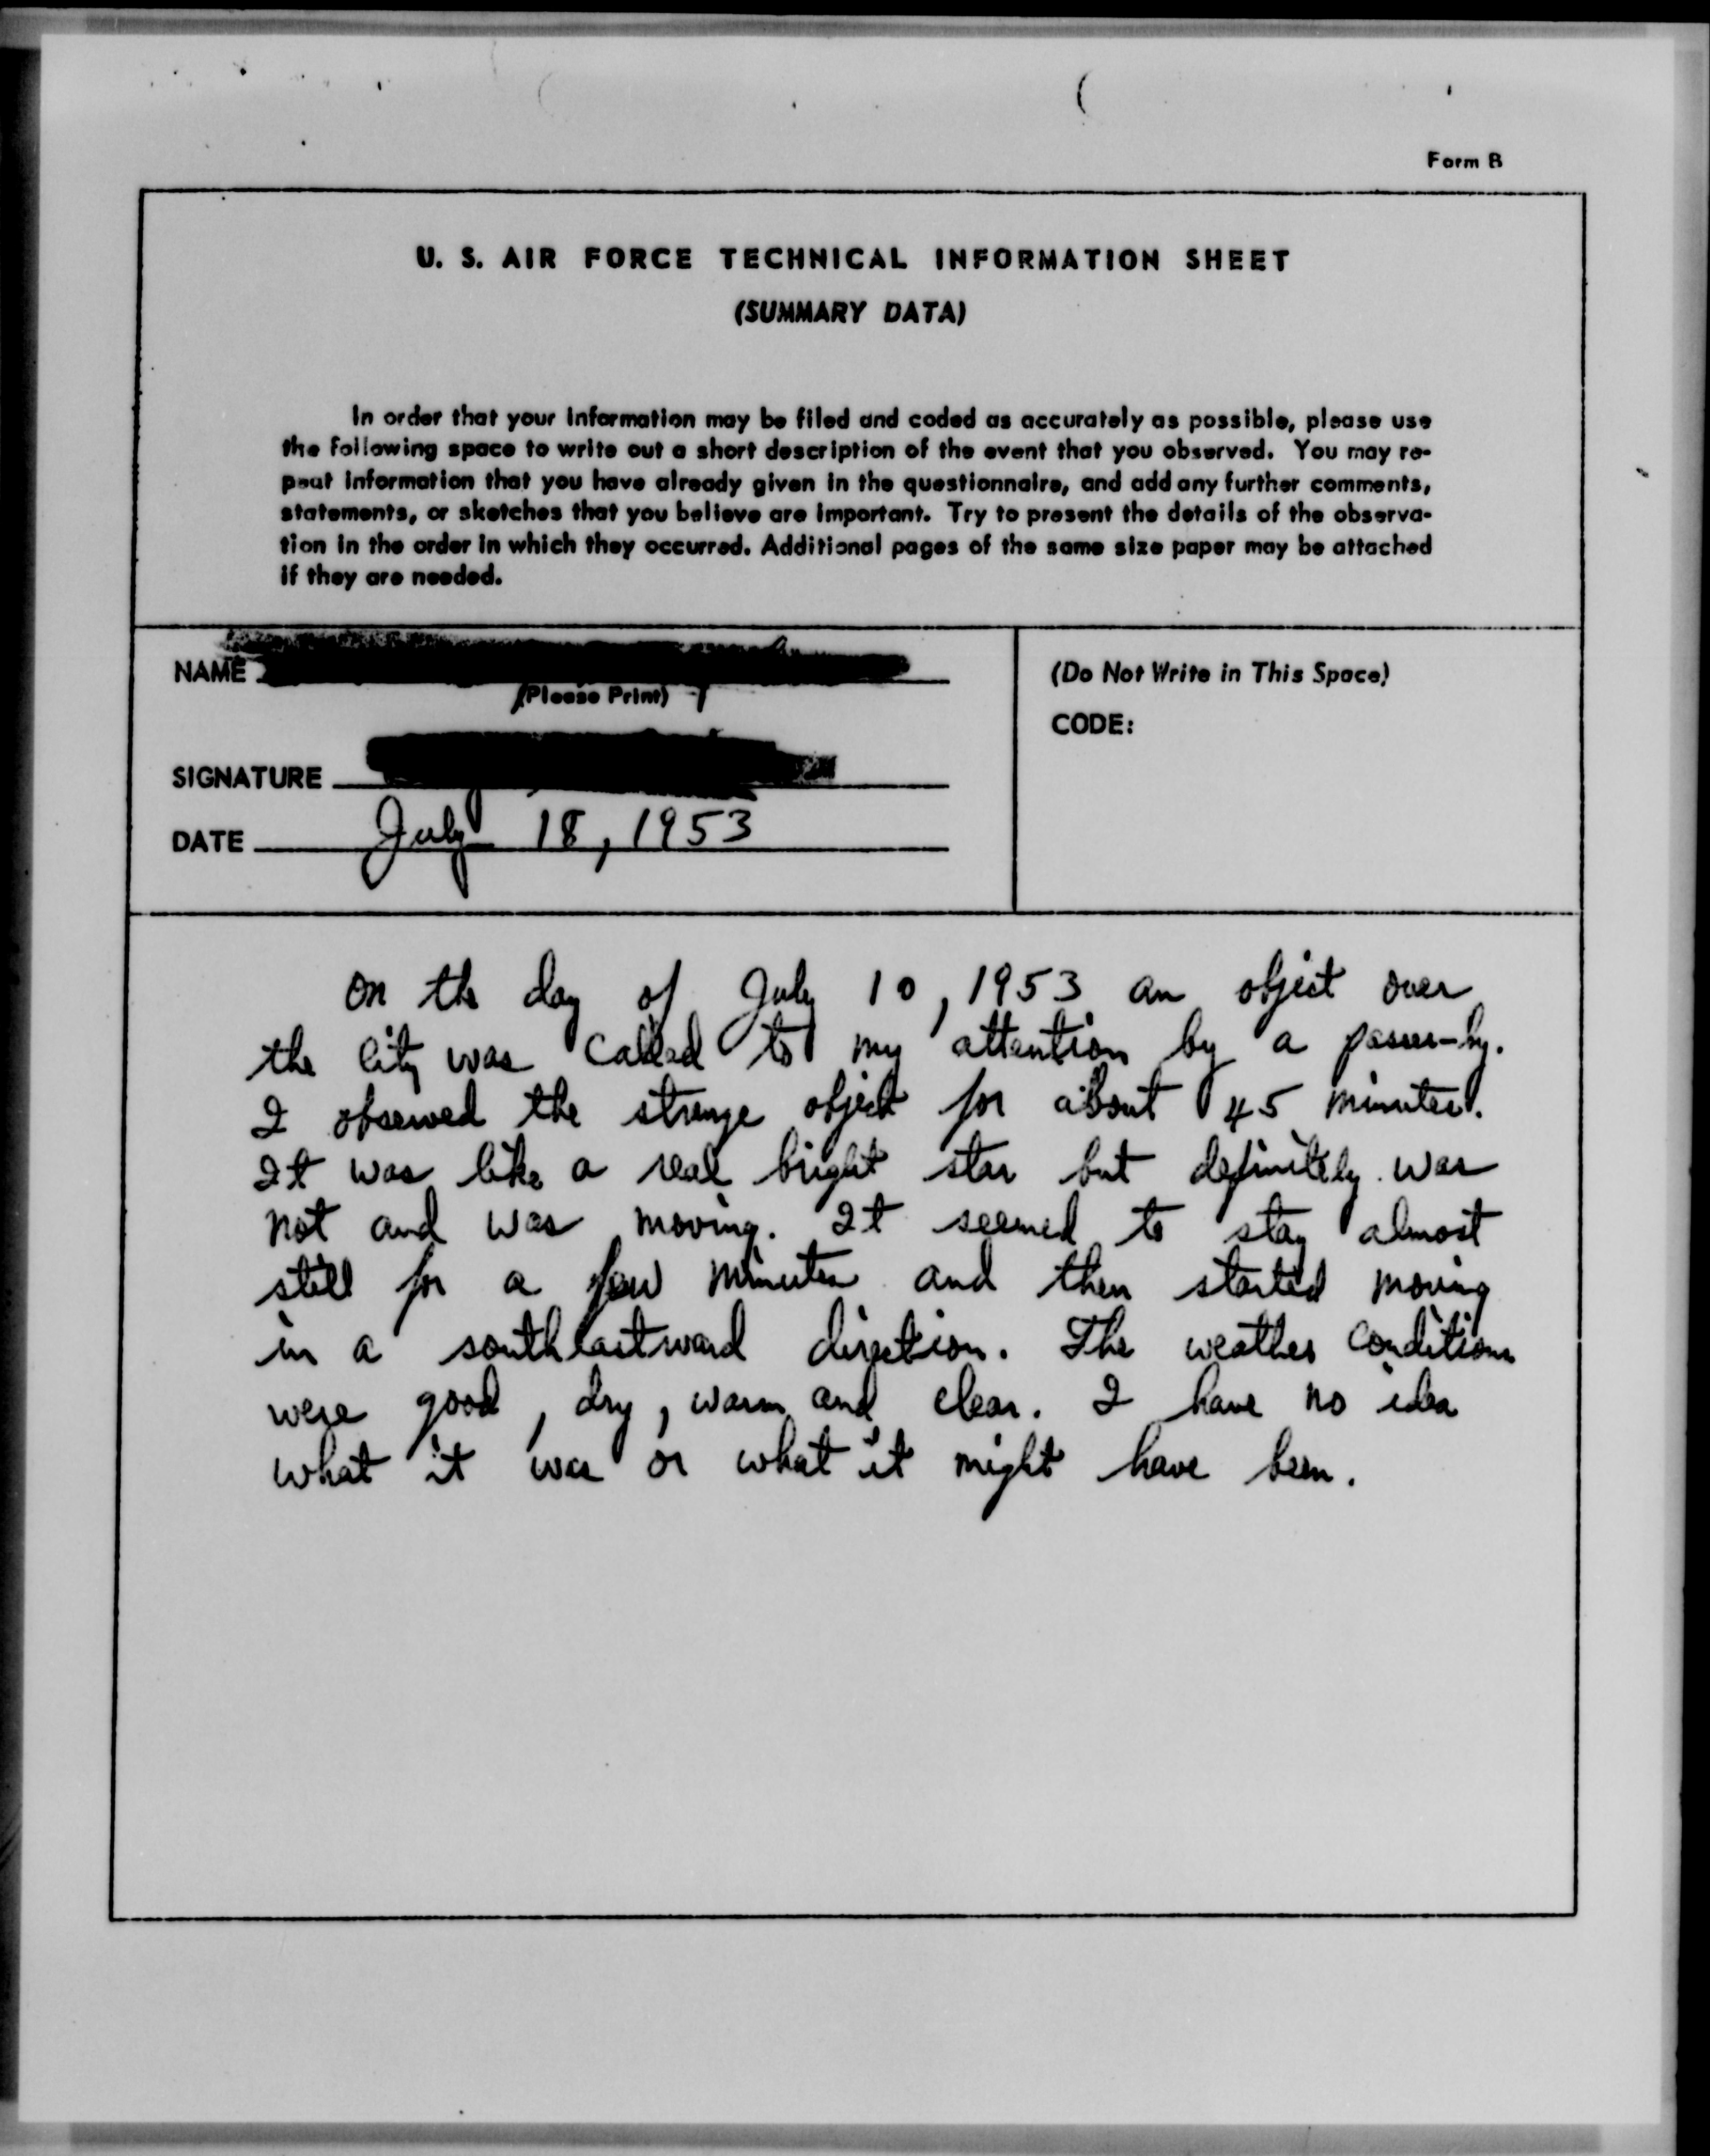 Form B
U. S. AIR FORCE TECHNICAL INFORMATION SHEET
(SUMMARY DATA)
In order that your information may be filed and coded as accurately as possible, please use
the following space to write out a short description of the event that you observed. You may re-
peat information that you have already given in the questionnaire, and add any further comments,
statements, or sketches that you believe are important. Try to present the details of the observa-
tion in the order in which they occurred. Additional pages of the same size paper may be attached
if they are needed.
NAME
(Please Print)
SIGNATURE
DATE July 18, 1953
(Do Not Write in This Space)
CODE:
On the day of July 10, 1953 an object over
the city was called to my attention by a passer-by.
I observed the strange object for about 45 minutes.
It was like a real bright star but definitely was
not and was moving. It seemed to stay almost
still for a few minutes and then started moving
in a southeastward direction. The weather conditions
were good, dry, warm and clear. I have no idea
what it was or what it might have been.